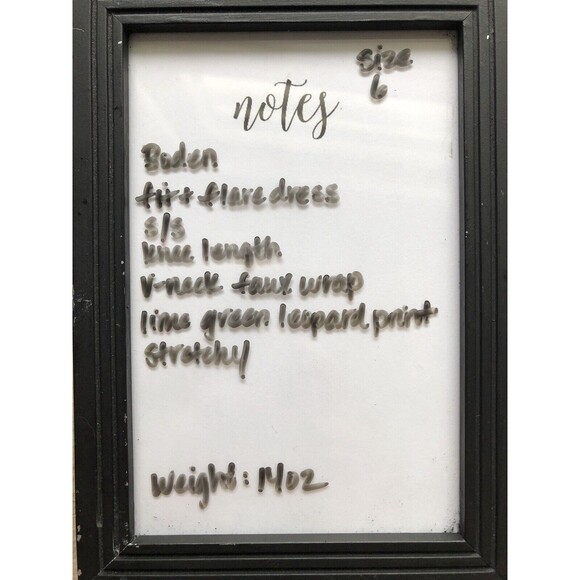 size
6
notes
Boden
fit + flare dress
s/s
knee length
V-neck faux wrap
lime green leopard print
stretchy
Weight: 14oz